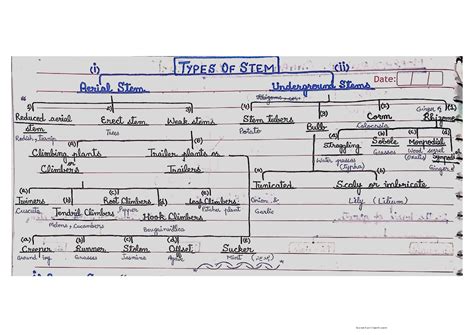 (i) TYPES OF STEM (ii)
Aerial Stem Underground Stems Date:
Reduced aerial stem Erect stem Weak stems Stem tubers Bulb Corm Rhizome
Radish, Turnip Trees Potato Colocasia Ginger
(a) Climbing plants or Climbers (b) Trailer plants or Trailers
Straggling Sobole Monpodial
Water grasses (Typha) Grasses Wood sorrel (Oxalis)
Ginger
Twiners Root Climbers Leaf Climbers Tunicated Scaly or imbricate
Cuscuta Tendril Climbers Pepper Hook Climbers Pitcher plant Onion & Garlic Lily (Lilium)
Melons & Cucumbers Bougainvillea
(a) (b) (c) (d) (e)
Creeper Runner Stolon Offset Sucker
Ground ivy Grasses Jasmine Mint